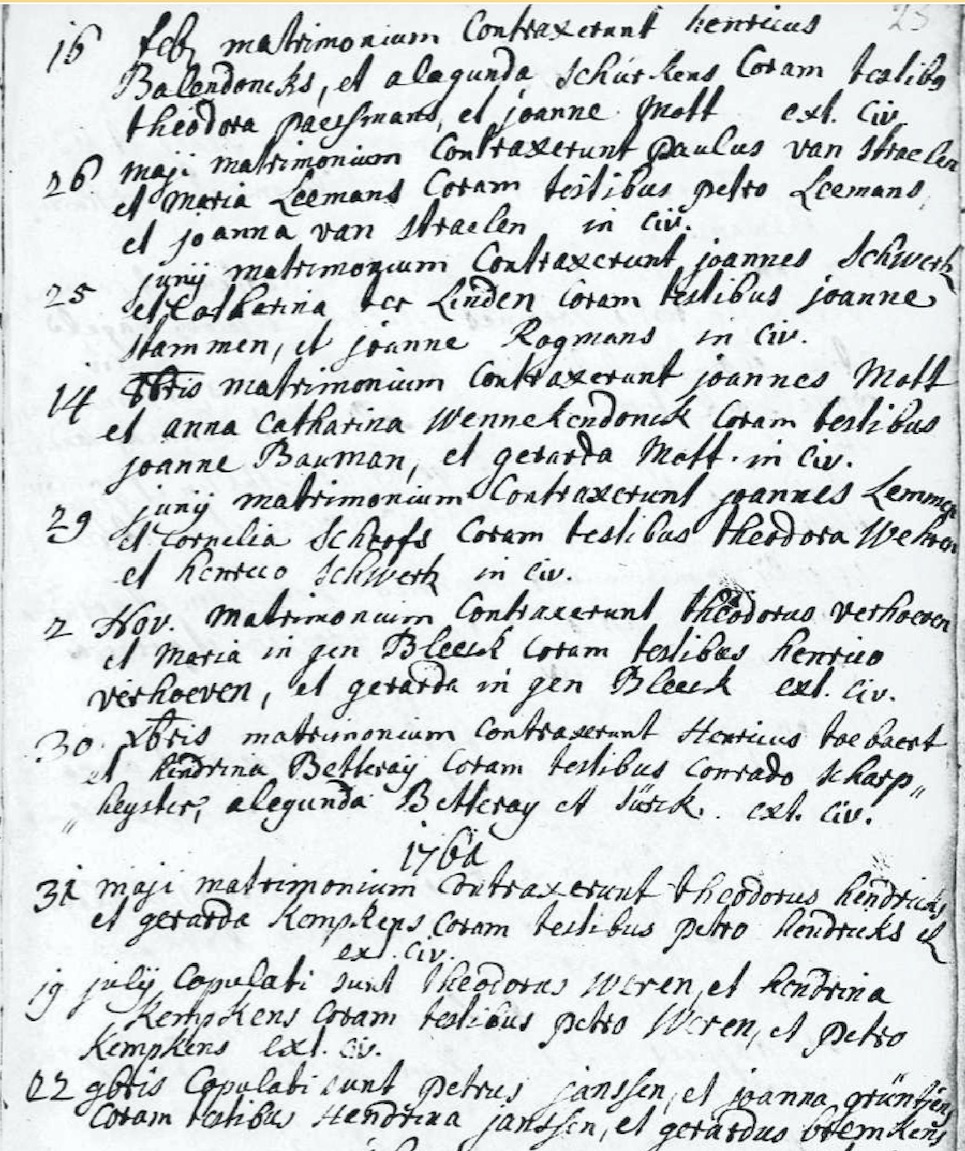 23
16 feb matrimonium Contraxerunt henricus
Balendoncks, et alagunda Schürkens Coram testibs
theodora paessmans, et joanne Mott ext. Civ.
26 maji matrimonium Contraxerunt paulus van Straelen
et Maria Leemans Coram testibus petro Leemans,
et joanna van Straelen in Civ.
25 junij matrimonium Contraxerunt joannes Schwertz
et Catharina ter Linden Coram testibus joanne
stammen, et joanne Rogmans in Civ.
14 8bris matrimonium Contraxerunt joannes Mott
et anna Catharina Wennekendonck Coram testibus
joanne Bauman, et gerarda Mott. in Civ.
29 junij matrimonium Contraxerunt joannes Lemmen
et Cornelia Schoofs Coram testibus theodora Wehren
et henrico Schwertz in Civ.
2 Nov. Matrimonium Contraxerunt theodorus verhoeven
et Maria in gen Bleeck Coram testibus henrico
verhoeven, et gerarda in gen Bleeck ext. Civ.
30 xbris matrimonium Contraxerunt Henricus toebaert
et hendrina Betteray Coram testibus Conrado scharp„
„ heyster, alegunda Betteray et Sürck. ext. Civ.
1761
31 maji matrimonium Contraxerunt theodorus hendricks
et gerarda Kempkens Coram testibus petro hendricks et
ext. Civ.
19 julij Copulati sunt theodorus Weren, et hendrina
Kempkens Coram testibus petro Weren, et petro
Kempkens ext. Civ.
22 9bris Copulati sunt petrus janssen, et joanna grüntjens
Coram testibus Hendrina janssen, et gerardus